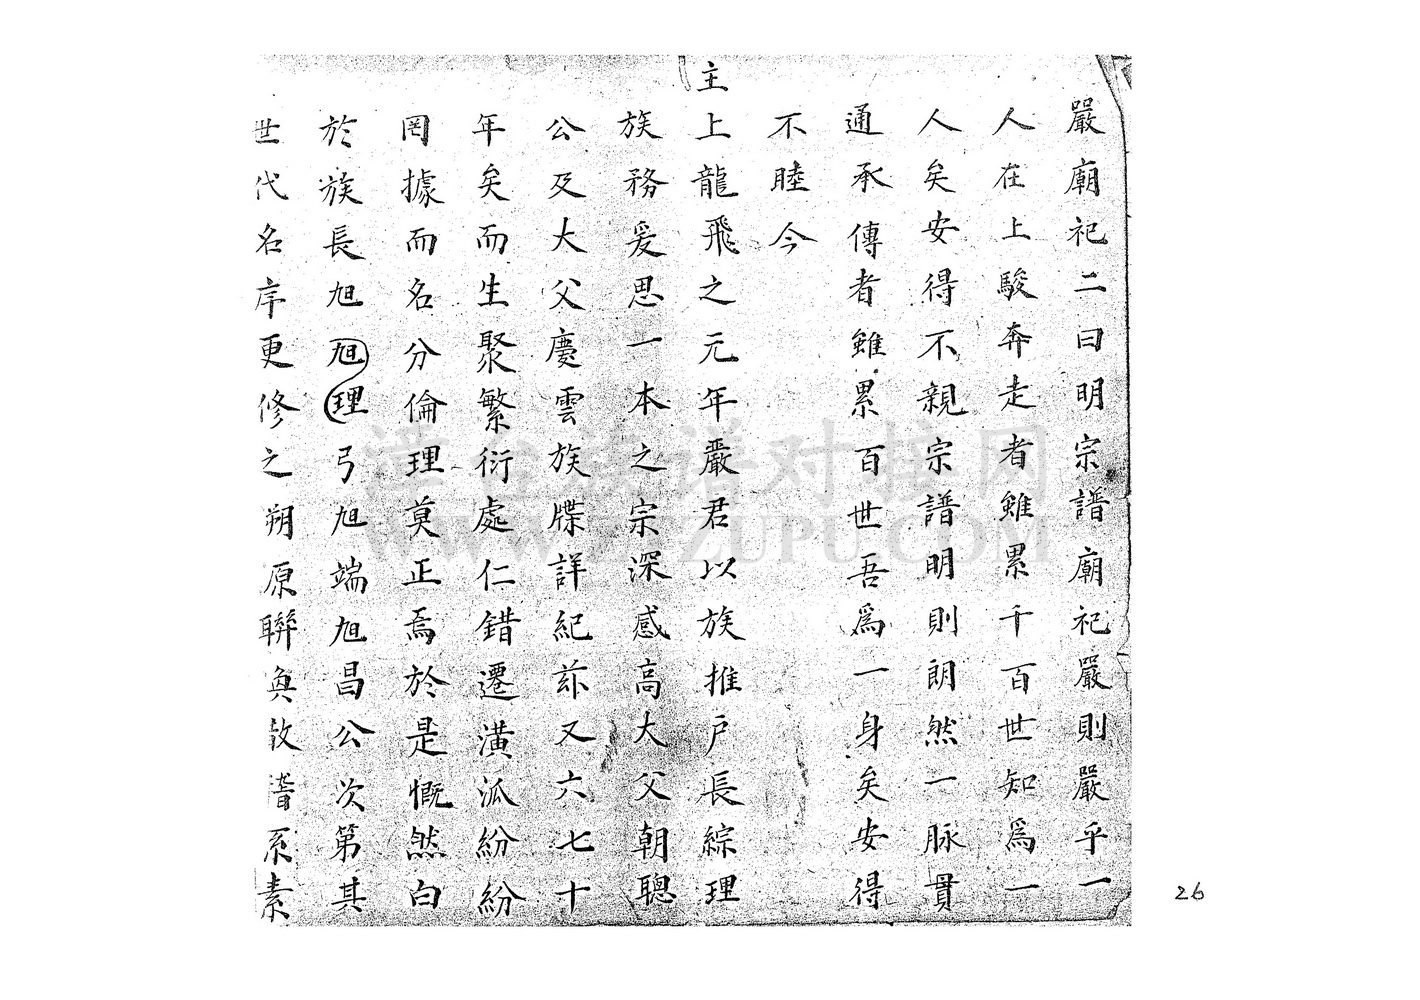 嚴廟祀二曰明宗譜廟祀嚴則嚴乎一
人在上駿奔走者雖累千百世知爲一
人矣安得不親宗譜明則朗然一脉貫
通承傳者雖累百世吾爲一身矣安得
不睦今
主上龍飛之元年嚴君以族推戶長綜理
族務爰思一本之宗深感高大父朝聰
公及大父慶雲族牒詳紀茲又六七十
年矣而生聚繁衍處仁錯遷潢派紛紛
罔據而名分倫理莫正焉於是慨然白
於族長旭旭理弓旭端旭昌公次第其
世代名序更修之朔原聯渙敬譜系素
漳台族谱对接网
WWW.ZTZUPU.COM
26